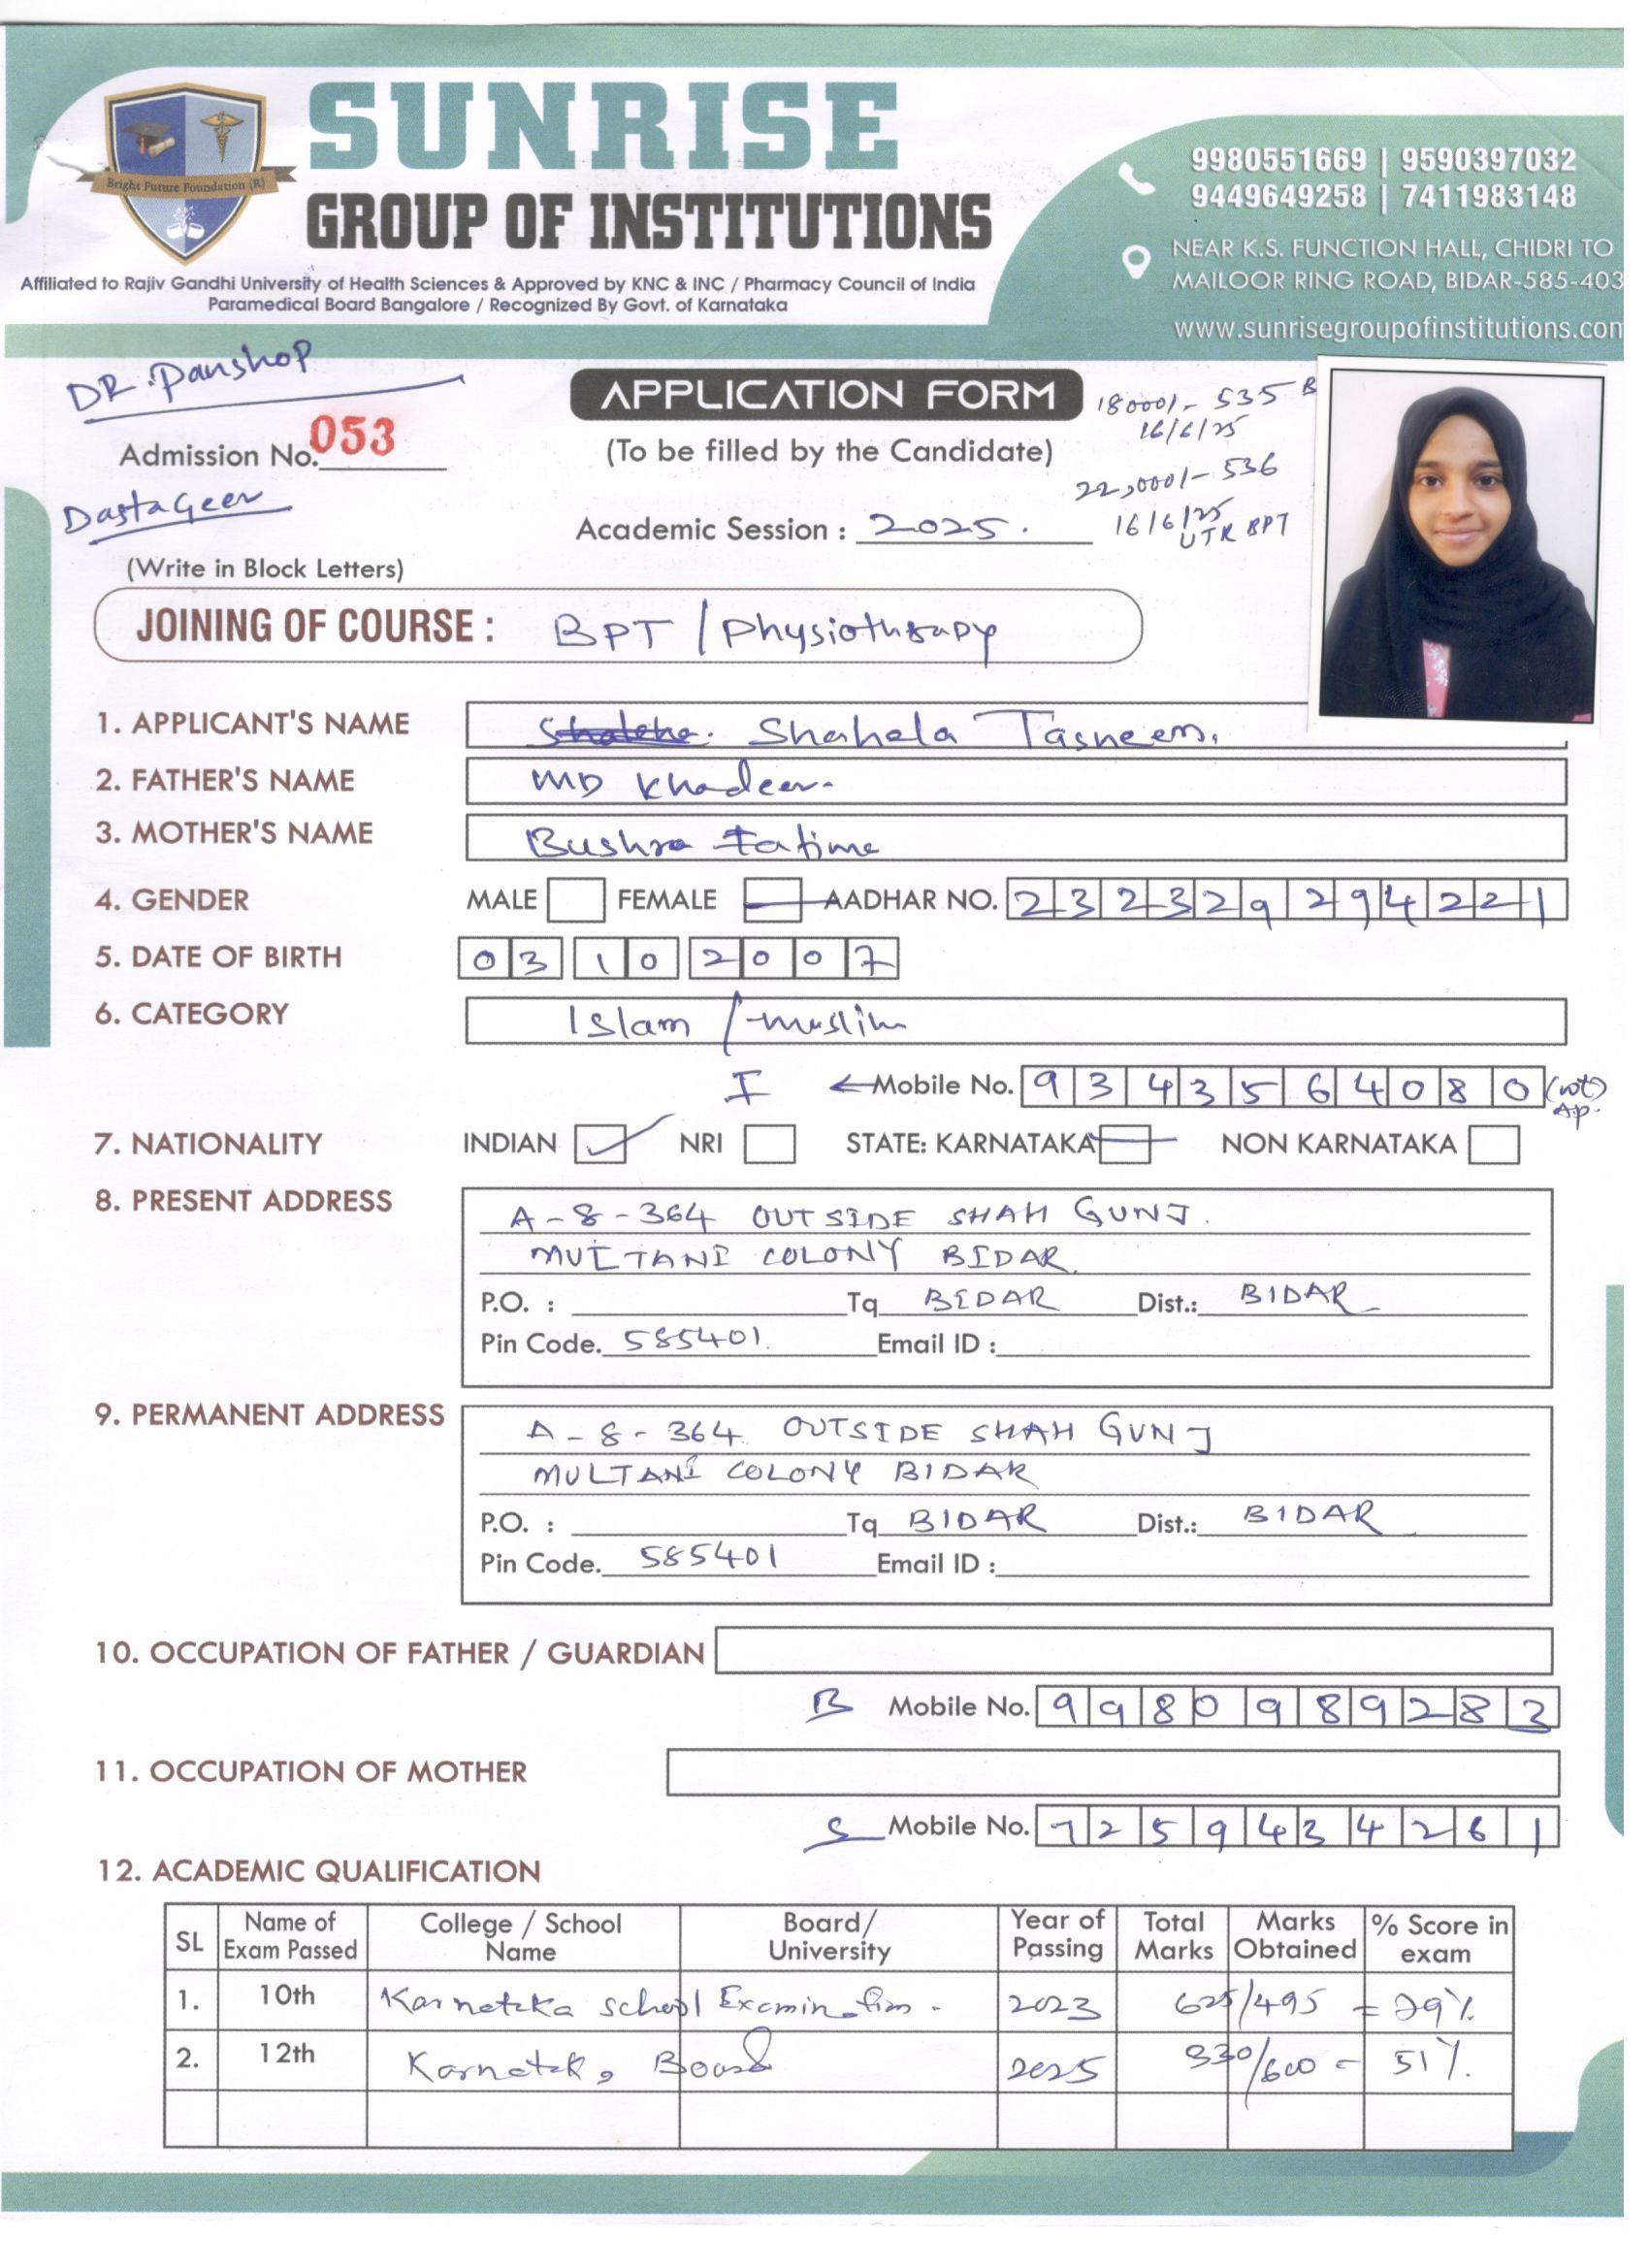 SUNRISE
GROUP OF INSTITUTIONS
Bright Future Foundation (R)
Affiliated to Rajiv Gandhi University of Health Sciences & Approved by KNC & INC / Pharmacy Council of India
Paramedical Board Bangalore / Recognized By Govt. of Karnataka
9980551669 | 9590397032
9449649258 | 7411983148
NEAR K.S. FUNCTION HALL, CHIDRI TO
MAILOOR RING ROAD, BIDAR-585-403
www.sunrisegroupofinstitutions.com
DR. Panshop
APPLICATION FORM
18000/- 535 B
16/6/25
Admission No. 053
(To be filled by the Candidate)
22,000/- 536
16/6/25
UTR BPT
DastaGeer
Academic Session : 2025.
(Write in Block Letters)
JOINING OF COURSE : BPT / Physiotherapy
1. APPLICANT'S NAME Shahela Tasneem.
2. FATHER'S NAME MD Khadeer.
3. MOTHER'S NAME Bushra Fatima
4. GENDER MALE FEMALE AADHAR NO. 232329294221
5. DATE OF BIRTH 03 10 2007
6. CATEGORY Islam / muslim
I ← Mobile No. 9343564080
7. NATIONALITY INDIAN NRI STATE: KARNATAKA NON KARNATAKA
8. PRESENT ADDRESS A-8-364 OUTSIDE SHAH GUNJ.
MULTANI COLONY BIDAR.
P.O. : Tq BIDAR Dist.: BIDAR
Pin Code. 585401. Email ID :
9. PERMANENT ADDRESS A-8-364 OUTSIDE SHAH GUNJ
MULTANI COLONY BIDAR
P.O. : Tq BIDAR Dist.: BIDAR
Pin Code. 585401 Email ID :
10. OCCUPATION OF FATHER / GUARDIAN
B Mobile No. 9980989283
11. OCCUPATION OF MOTHER
S Mobile No. 7259434261
12. ACADEMIC QUALIFICATION
SL Name of Exam Passed College / School Name Board/ University Year of Passing Total Marks Marks Obtained % Score in exam
1. 10th Karnataka school Examination - 2023 625/495 = 79%
2. 12th Karnataka Board 2025 330/600 = 51%